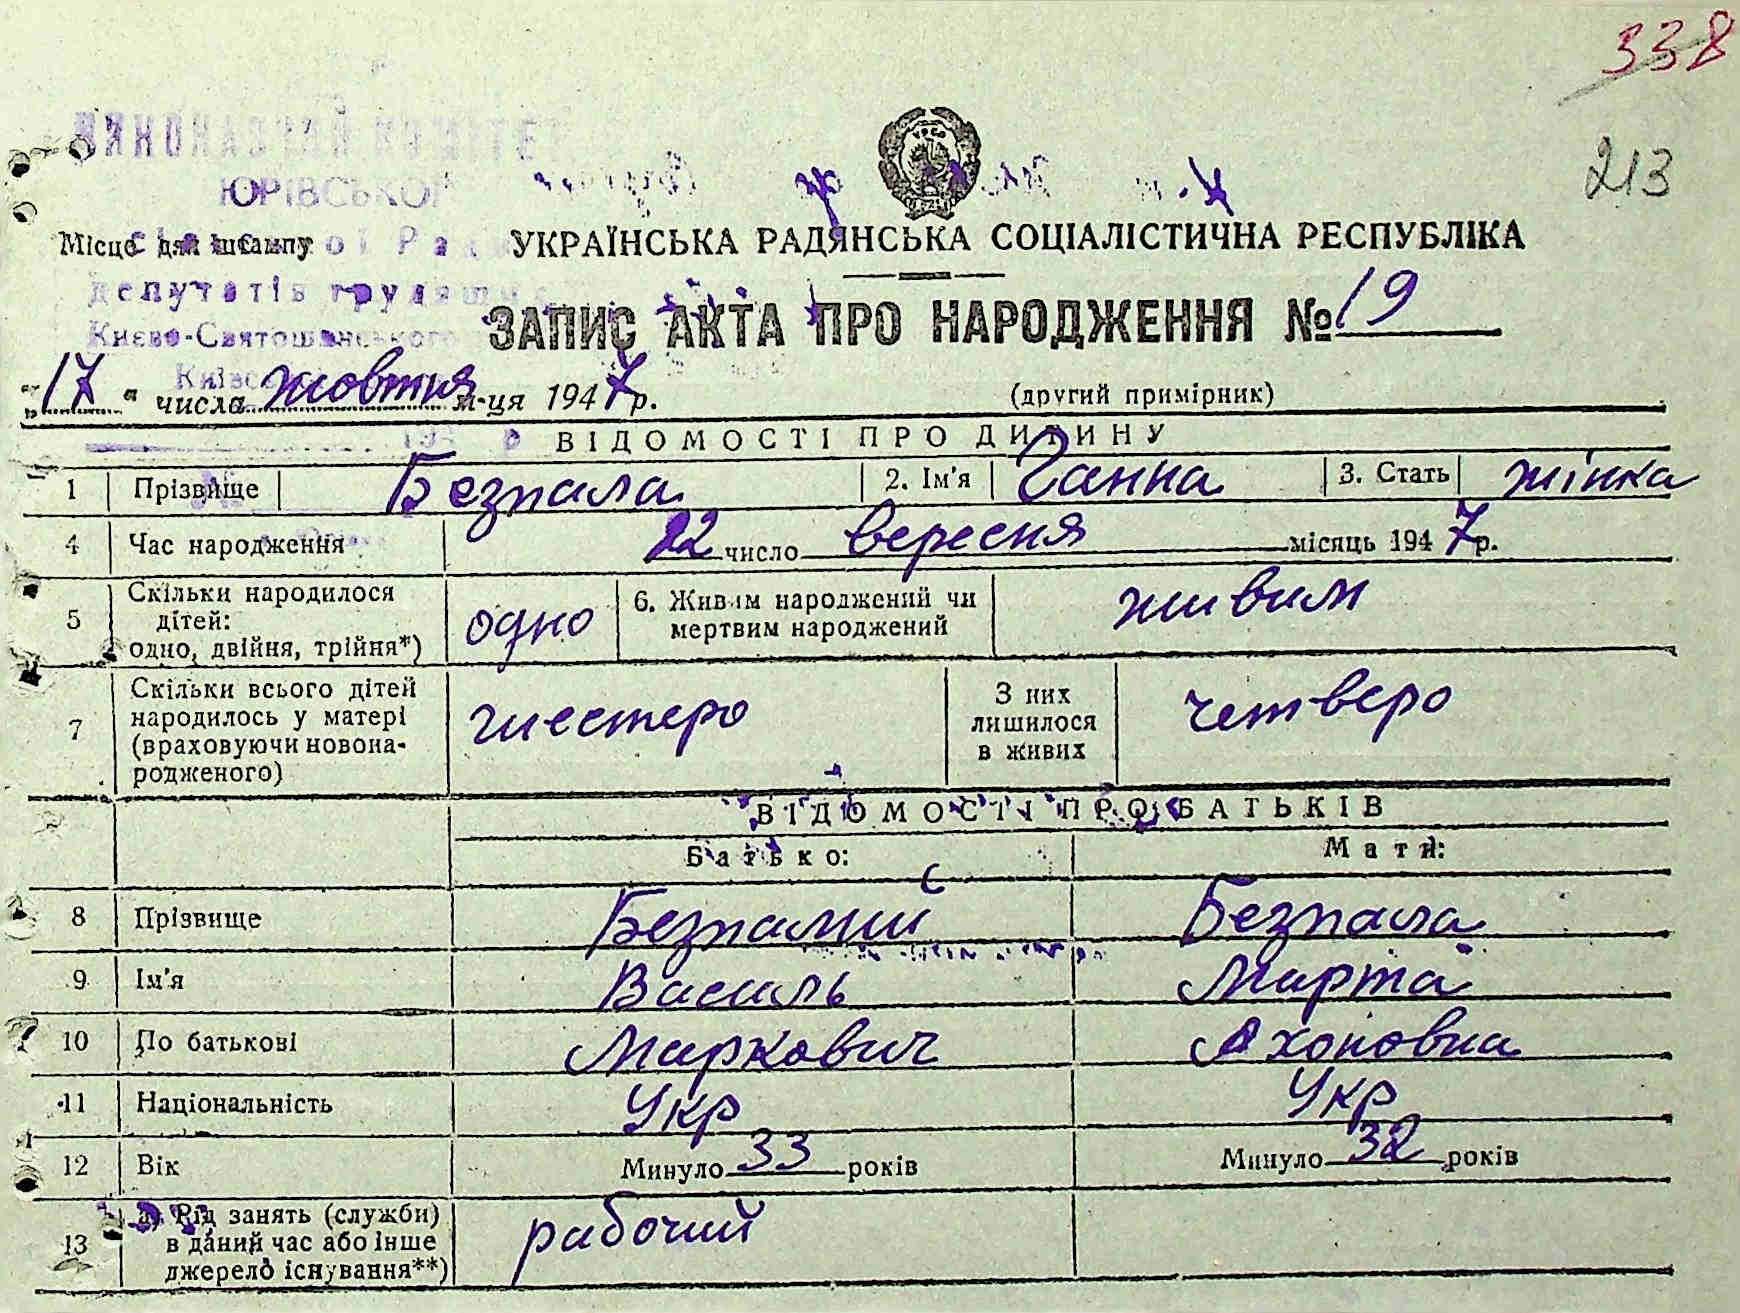 338
213
ВИКОНАВЧИЙ КОМІТЕ
ЮРІВСЬКОЇ
Місце для штампу
депутатів трудящих
Києво-Святошинського
УКРАЇНСЬКА РАДЯНСЬКА СОЦІАЛІСТИЧНА РЕСПУБЛІКА
ЗАПИС АКТА ПРО НАРОДЖЕННЯ № 19
„17" числа жовтня м-ця 1947 р.
(другий примірник)
ВІДОМОСТІ ПРО ДИТИНУ
1 Прізвище Безпала 2. Ім'я Ганна 3. Стать жінка
4 Час народження 22 число вересня місяць 1947 р.
5 Скільки народилося дітей: одно, двійня, трійня*) одно 6. Живим народжений чи мертвим народжений живим
7 Скільки всього дітей народилось у матері (враховуючи новонародженого) шестеро З них лишилося в живих четверо
ВІДОМОСТІ ПРО БАТЬКІВ
Батько: Мати:
8 Прізвище Безпалий Безпала
9 Ім'я Василь Марта
10 По батькові Маркович
11 Національність Укр Укр
12 Вік Минуло 33 років Минуло 32 років
13 а) Рід занять (служби) в даний час або інше джерело існування**) рабочий